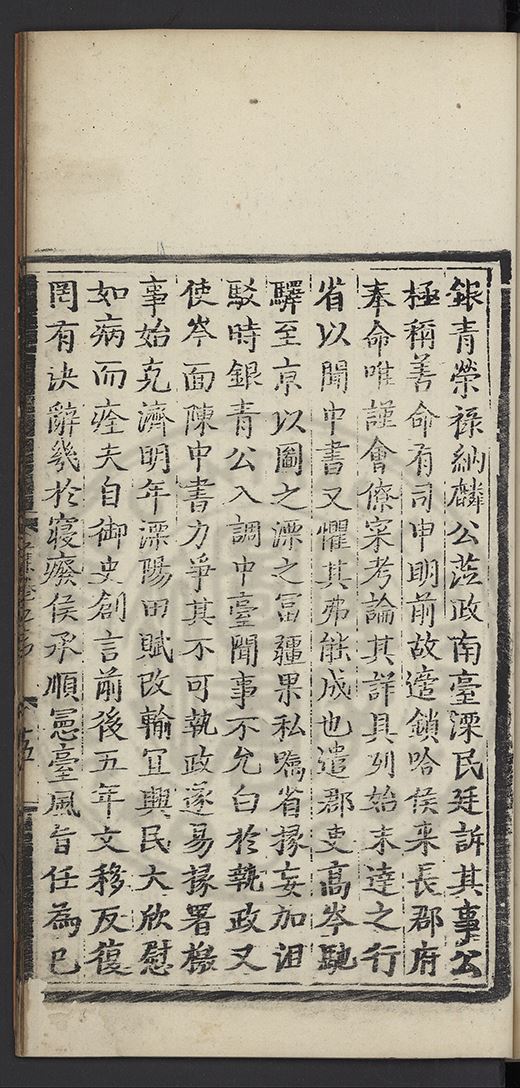 銀青榮祿納麟公蒞政南臺溧民廷訴其事公
極稱善命有司申明前故適鎖哈侯来長郡府
奉命唯謹會僚寀考論其詳具列始末達之行
省以聞中書又懼其弗能成也遣郡吏髙岑馳
驛至京以圖之溧之冨疆果私賂省掾妄加沮
駁時銀青公入調中臺聞事不允白於執政又
使岑面陳中書力爭其不可執政遂易掾署檄
事始克濟明年溧陽田賦改輸冝興民大欣慰
如病而痊夫自御史創言前後五年文移反復
罔有決辭幾於寢癈侯承順憲臺風旨任為已
十五